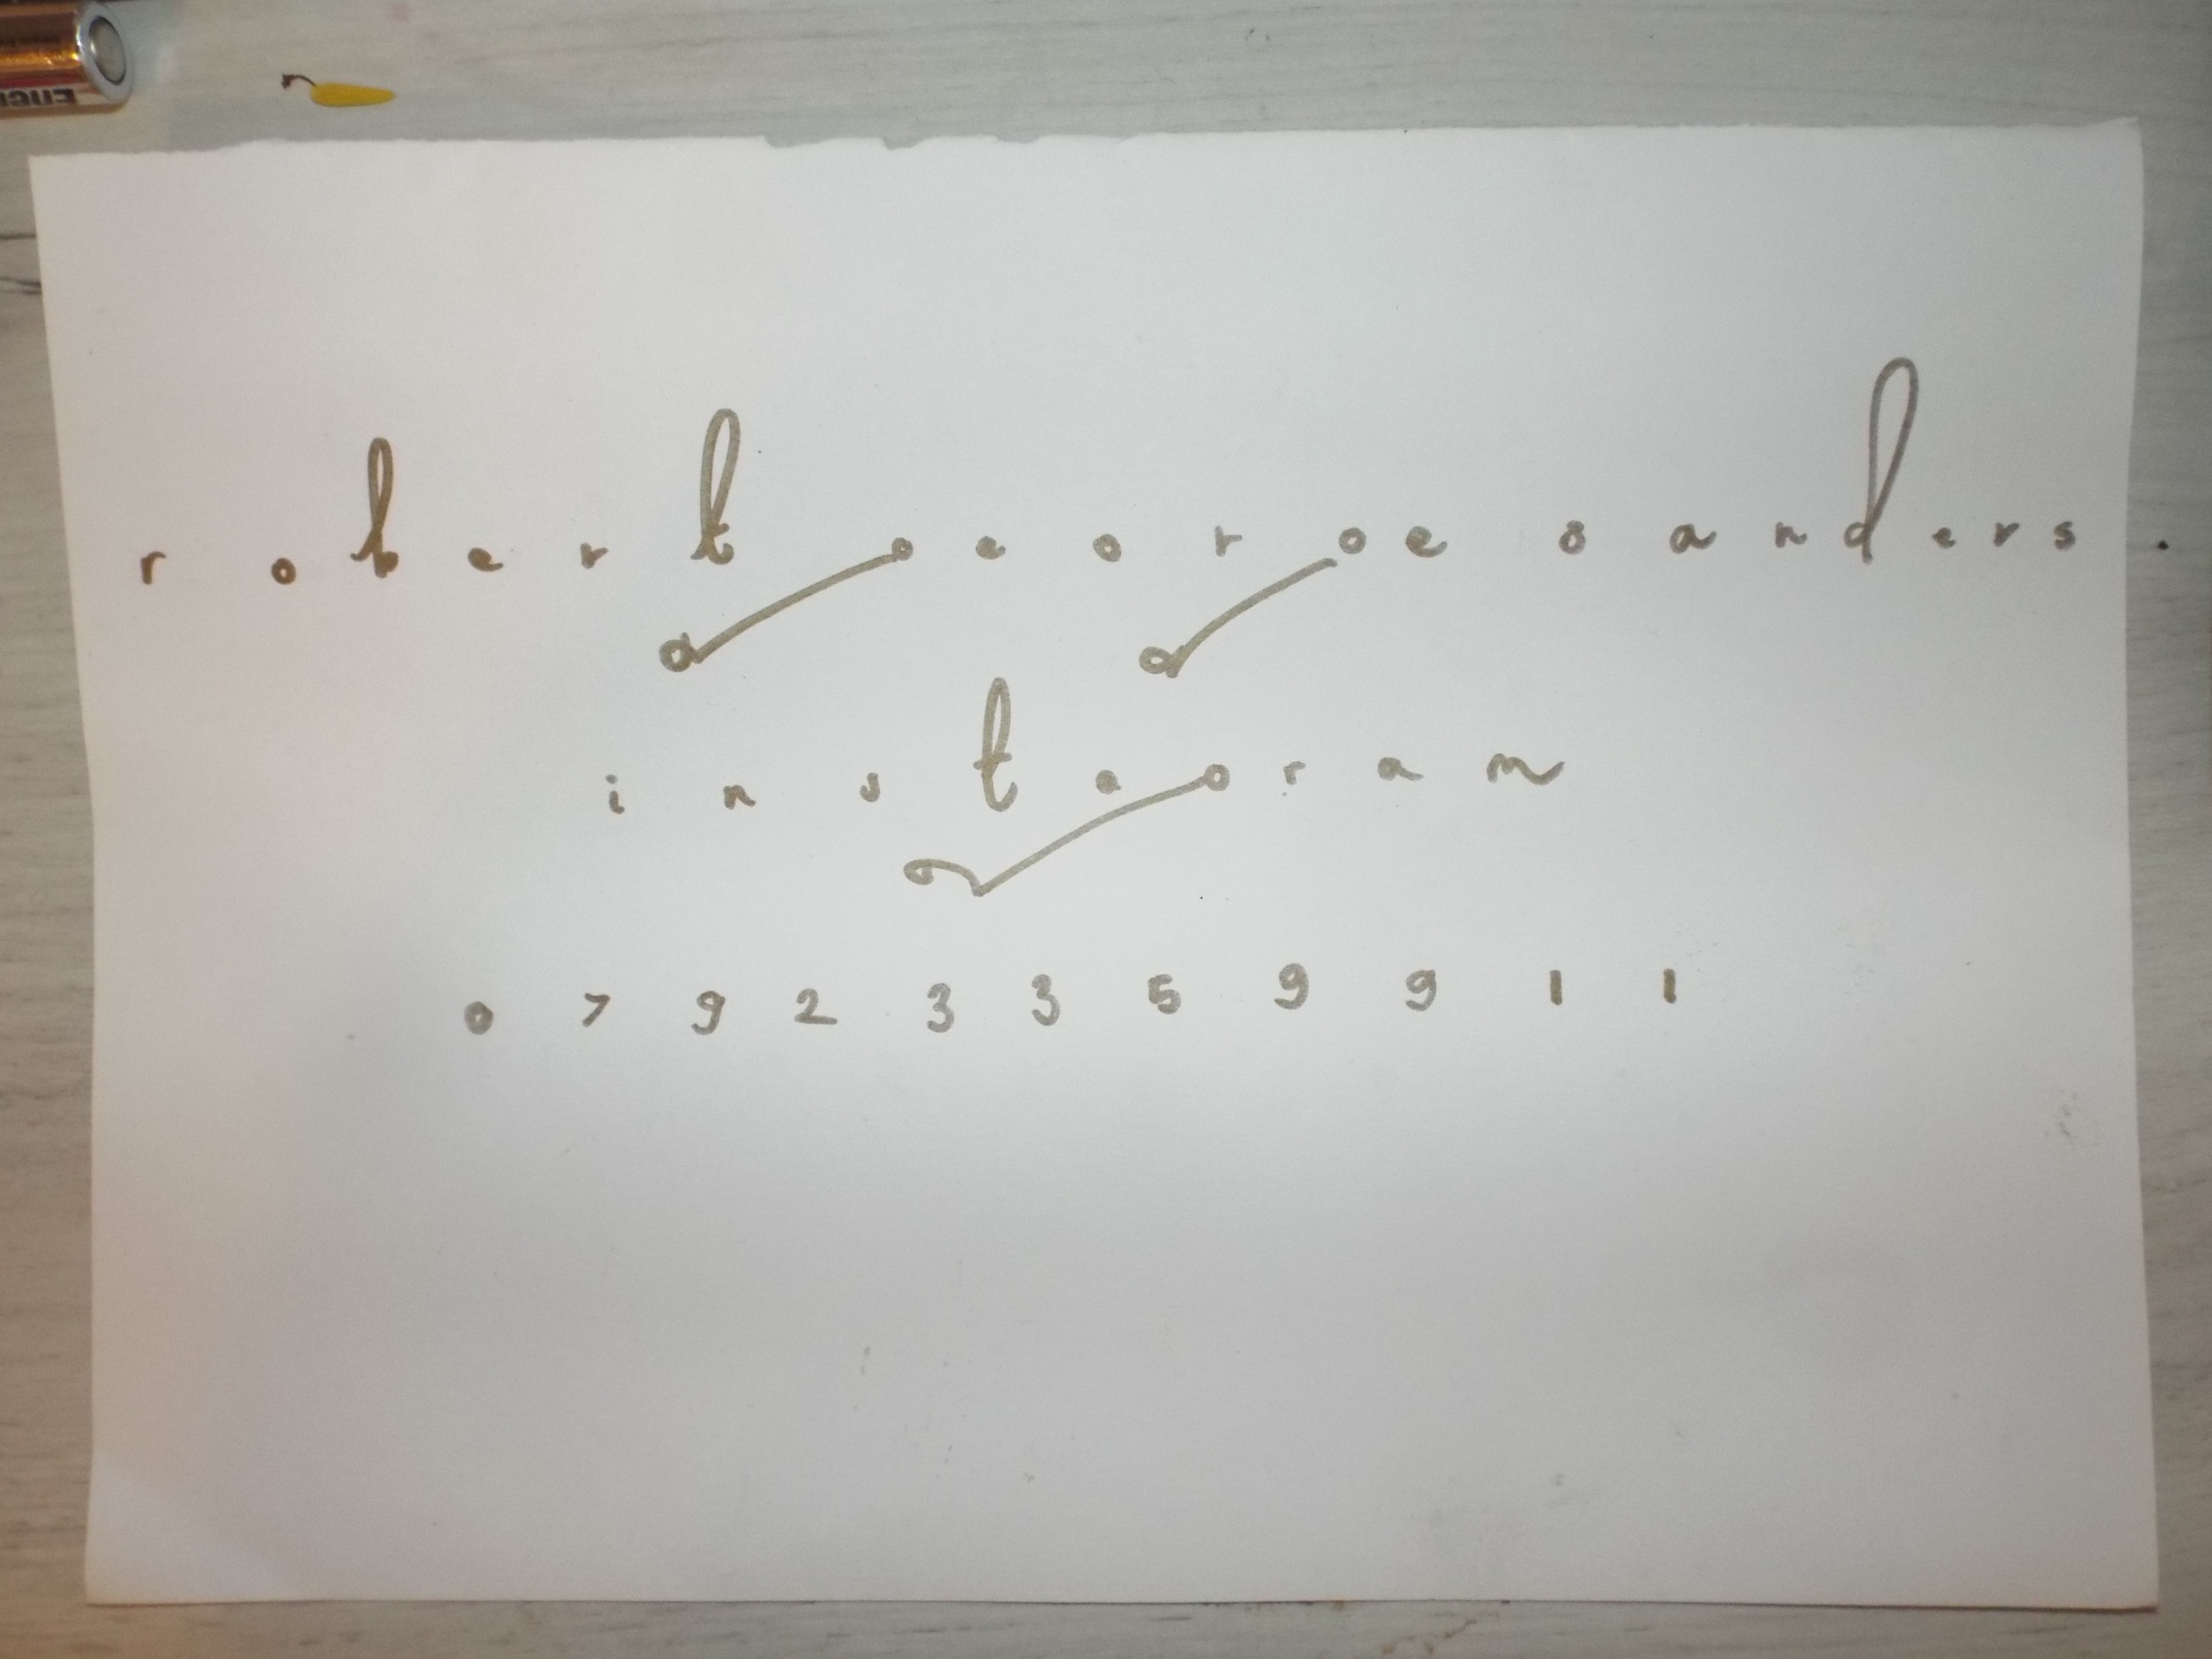 Ener
robert george sanders.
instagram
07923359911